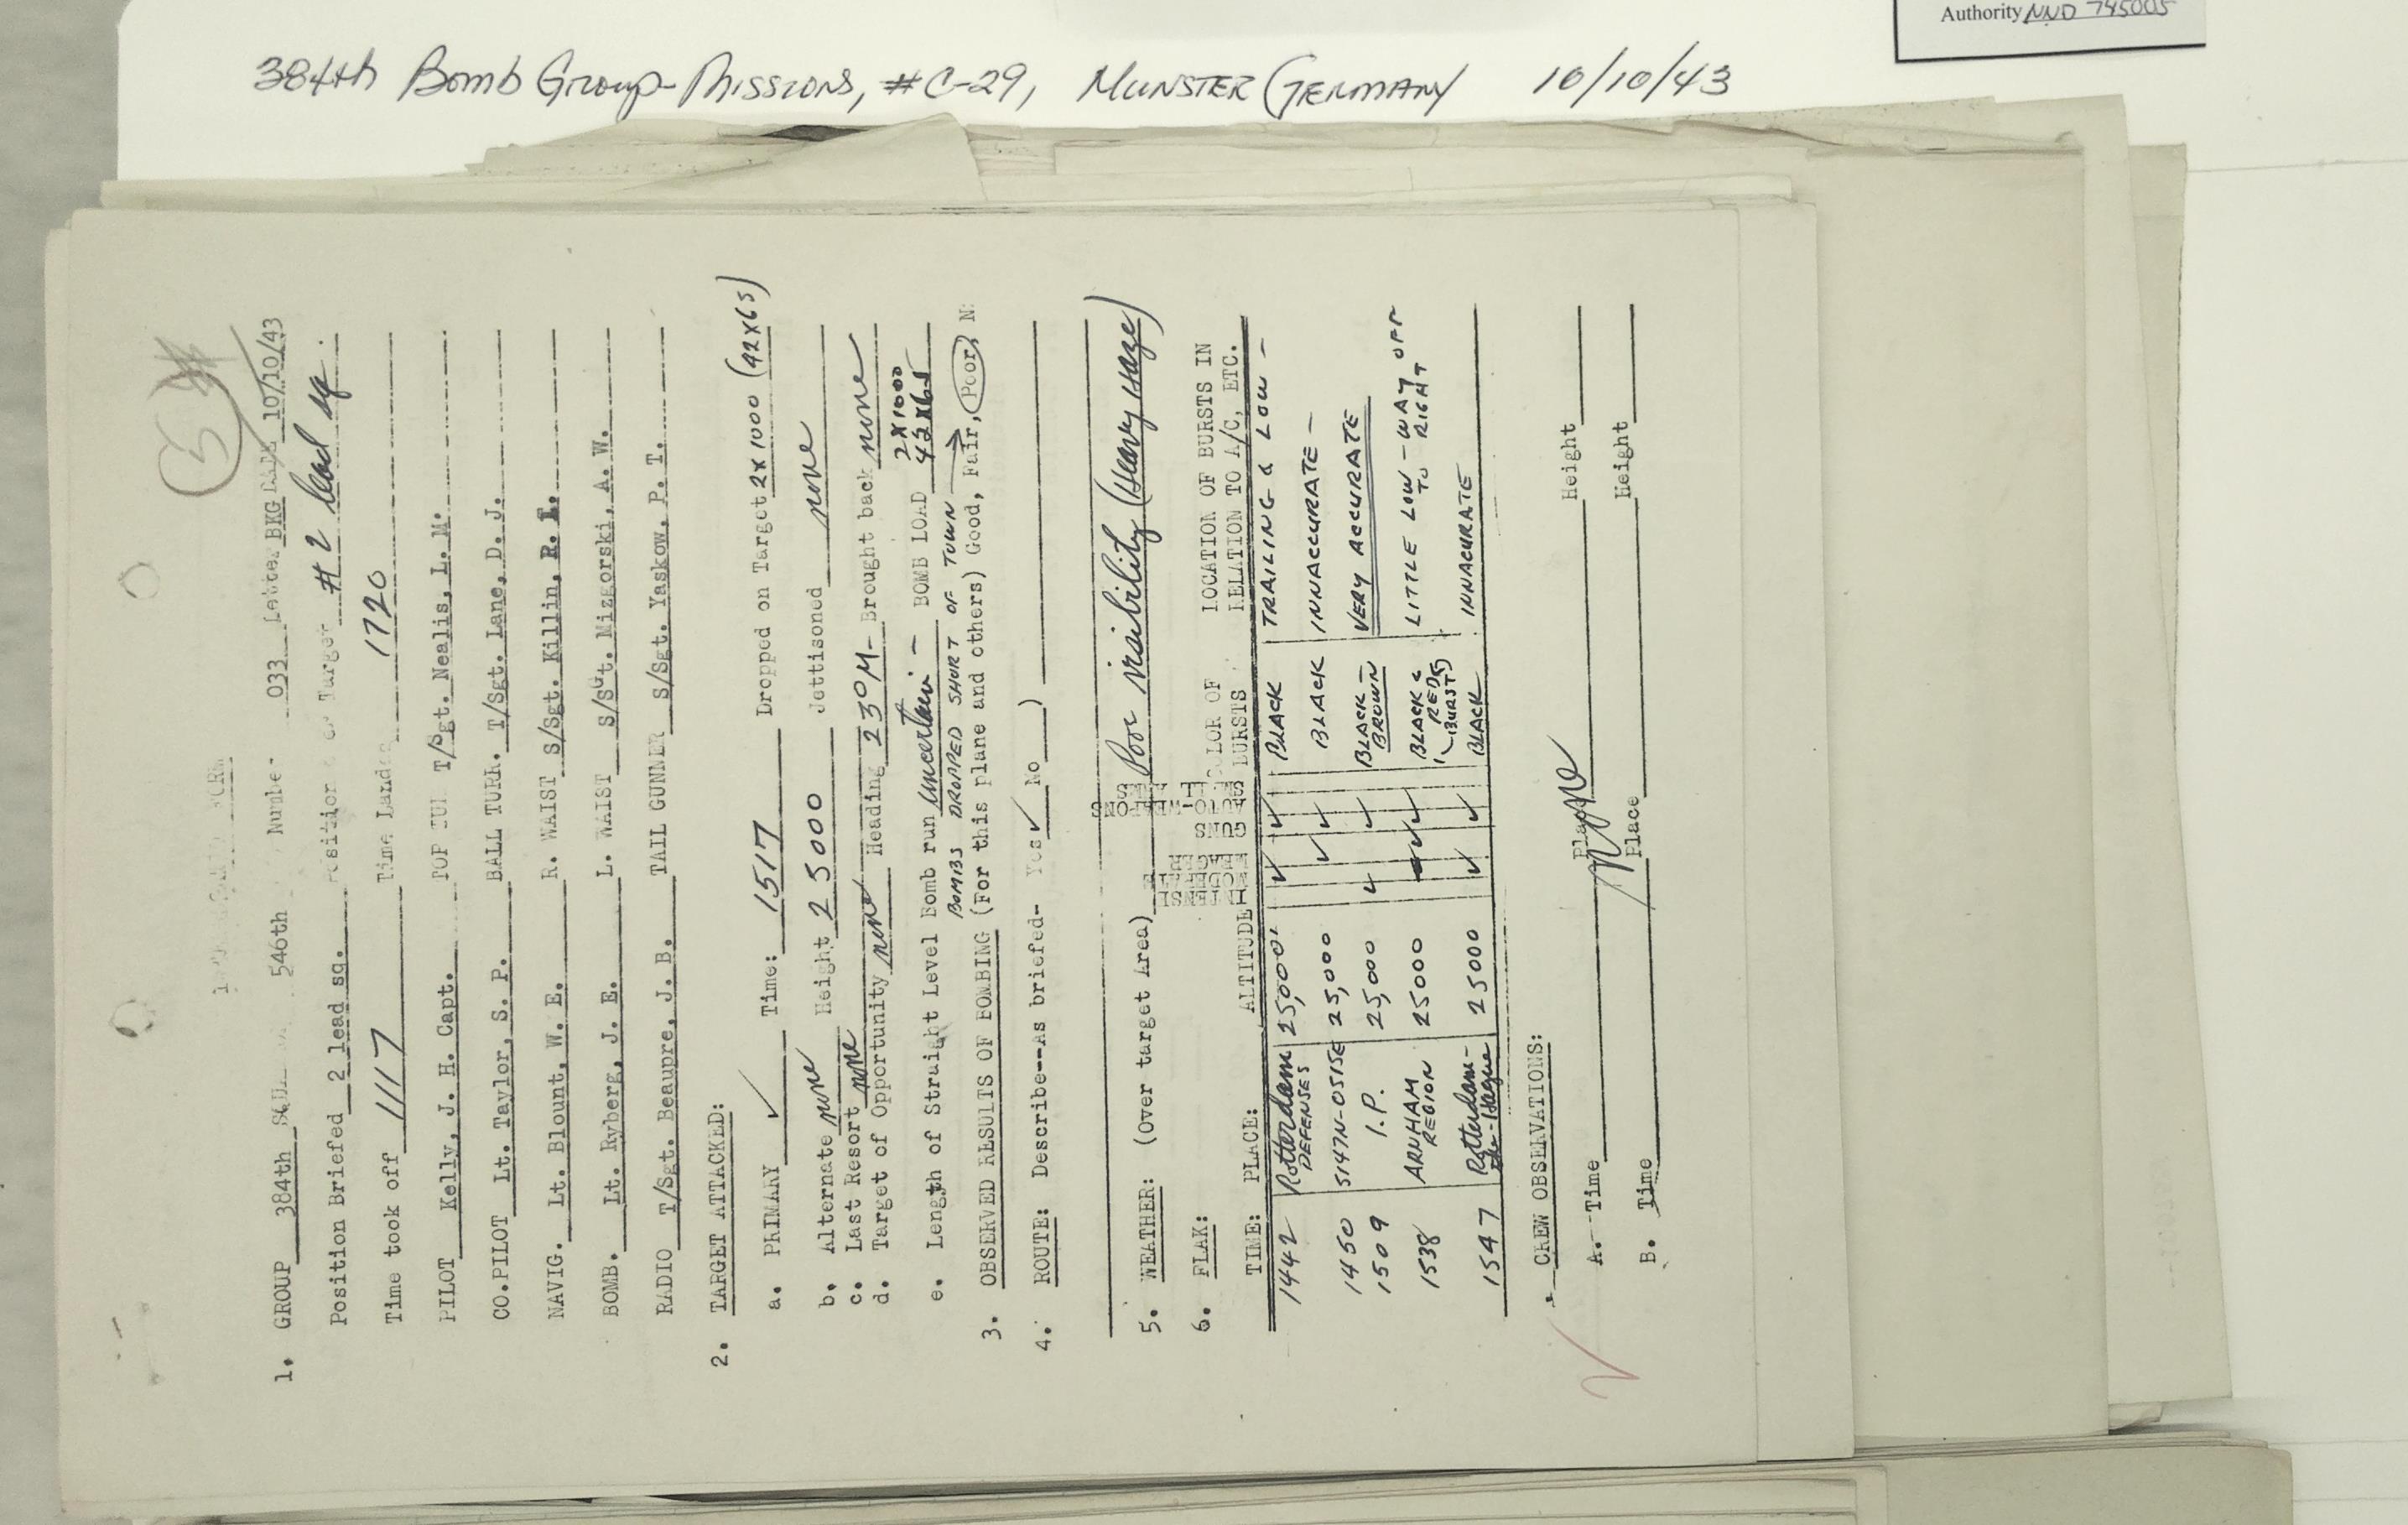 Authority NND 745005
384th Bomb Group-Missions, #C-29, MUNSTER GERMANY 10/10/43
1. GROUP 384th 546th Number 033 Letter BKG DATE 10/10/43
Position Briefed 2 lead sq. Position over Target #2 lead sq.
Time took off 1117 Time Landed 1720
PILOT Kelly, J. H. Capt. TOP TUR T/Sgt. Nealis, L. M.
CO.PILOT Lt. Taylor, S. P. BALL TURR. T/Sgt. Lane, D. J.
NAVIG. Lt. Blount, W. E. R. WAIST S/Sgt. Killin, R. E.
BOMB. Lt. Ryberg, J. E. L. WAIST S/Sgt. Mizgorski, A. W.
RADIO T/Sgt. Beaupre, J. B. TAIL GUNNER S/Sgt. Yaskow, P. T.
2. TARGET ATTACKED:
a. PRIMARY ✓ Time: 1517 Dropped on Target 2x1000 (42x65)
b. Alternate none Height 25000 Jettisoned none
c. Last Resort none
d. Target of Opportunity none Heading 230M- Brought back none
2x1000
e. Length of Straight Level Bomb run Uncertain - BOMB LOAD 42x65
BOMBS DROPPED SHORT OF TOWN
3. OBSERVED RESULTS OF BOMBING (For this plane and others) Good, Fair, Poor, N:
4. ROUTE: Describe--As briefed- Yes ✓ No )
5. WEATHER: (Over target Area) Poor visibility (Heavy Haze)
6. FLAK: COLOR OF LOCATION OF BURSTS IN
TIME: PLACE: ALTITUDE BURSTS RELATION TO A/C, ETC.
1442 Rotterdam 25,000' ✓ ✓ BLACK TRAILING & LOW -
DEFENSES
1450 5147N-0515E 25,000 ✓ ✓ BLACK INNACCURATE -
1509 I.P. 25,000 ✓ ✓ BLACK - VERY ACCURATE
BROWN
1538 ARNHAM 25000 ✓ ✓ BLACK & LITTLE LOW - WAY OFF
REGION RED TO RIGHT
(BURSTS)
1547 Rotterdam- 25000 ✓ ✓ BLACK INNACURATE
the-Hague
CREW OBSERVATIONS:
A. Time Place Height
B. Time Place Height